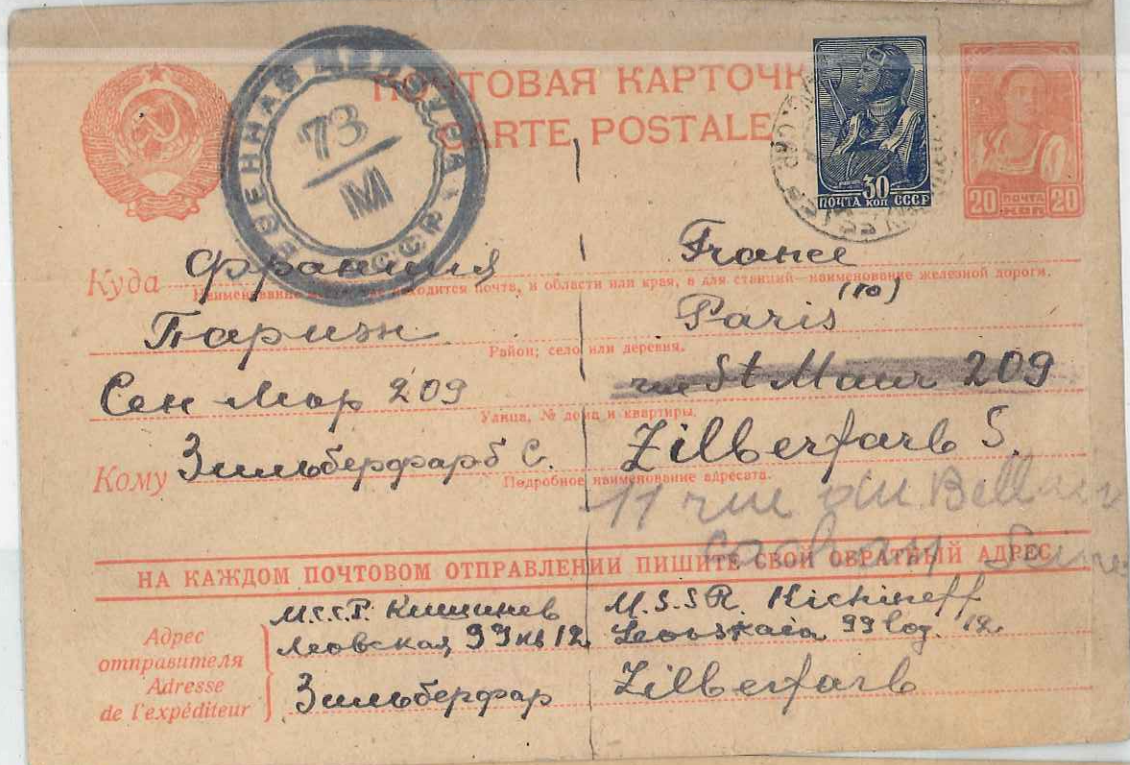 ПОЧТОВАЯ КАРТОЧКА
CARTE POSTALE
ВОЕННАЯ ЦЕНЗУРА СССР
73
М
30
ПОЧТА КОП СССР
20 ПОЧТА КОП 20
Куда Франция
France
Наименование находится почта, и области или края, а для станций—наименование железной дороги.
Париж
Paris (10)
Район; село или деревня.
Сен Мор 209
rue St Maur 209
Улица, № дома и квартиры.
Кому Зильберфарб С.
Zilberfarb S.
Подробное наименование адресата.
11 rue du
Cachan Seine
НА КАЖДОМ ПОЧТОВОМ ОТПРАВЛЕНИИ ПИШИТЕ СВОЙ ОБРАТНЫЙ АДРЕС
Адрес отправителя
Adresse de l'expéditeur
М.С.С.Р. Кишинев
Леовская 99 кв 12
Зильберфар
M.S.S.R. Kichineff
Leovskaia 99 log. 12
Zilberfarb